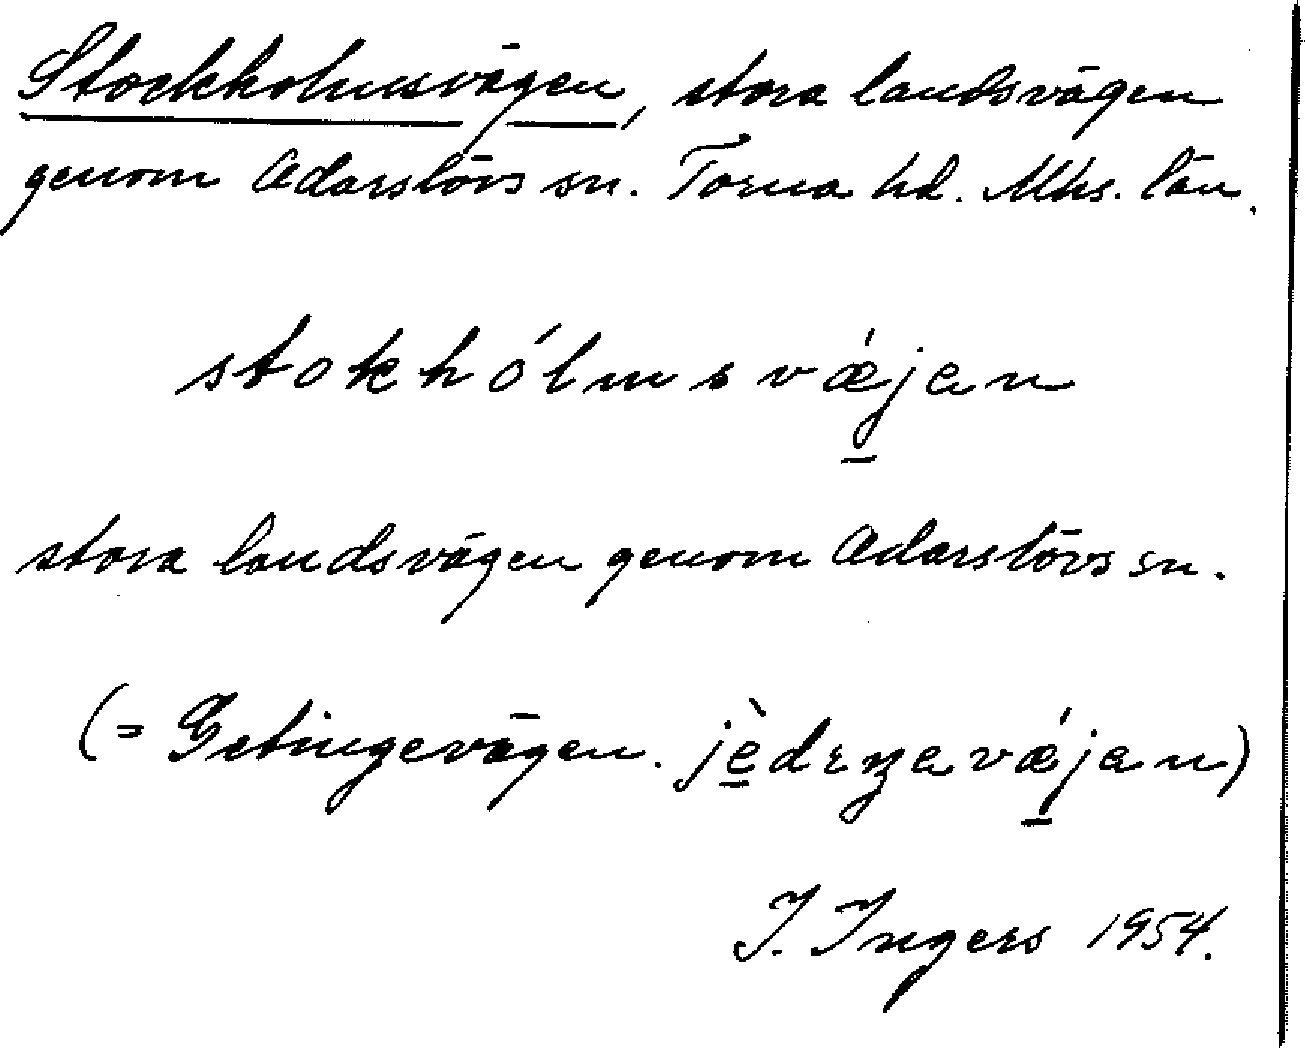 Stockholmsvägen, stora landsvägen
genom Odarslövs sn. Torna hd. Mhs. län.
stokhólmsvǽjan
stora landsvägen genom Odarslövs sn.
(= Getingevägen. jèdɪŋavǽjan)
I. Ingers 1954.